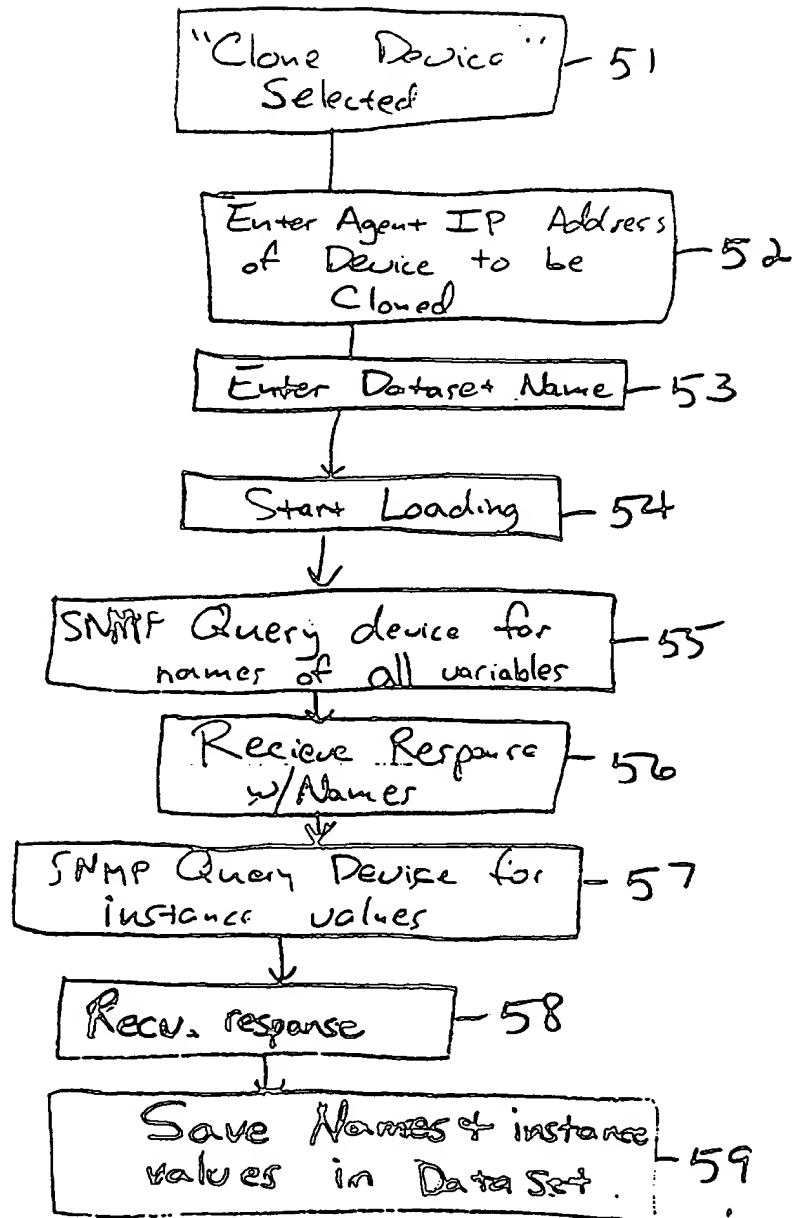 "Clone Device"
Selected
51
Enter Agent IP Address
of Device to be
Cloned
52
Enter Dataset Name
53
Start Loading
54
SNMP Query device for
names of all variables
55
Recieve Response
w/Names
56
SNMP Query Device for
instance values
57
Recv. response
58
Save Names + instance
values in Data Set.
59